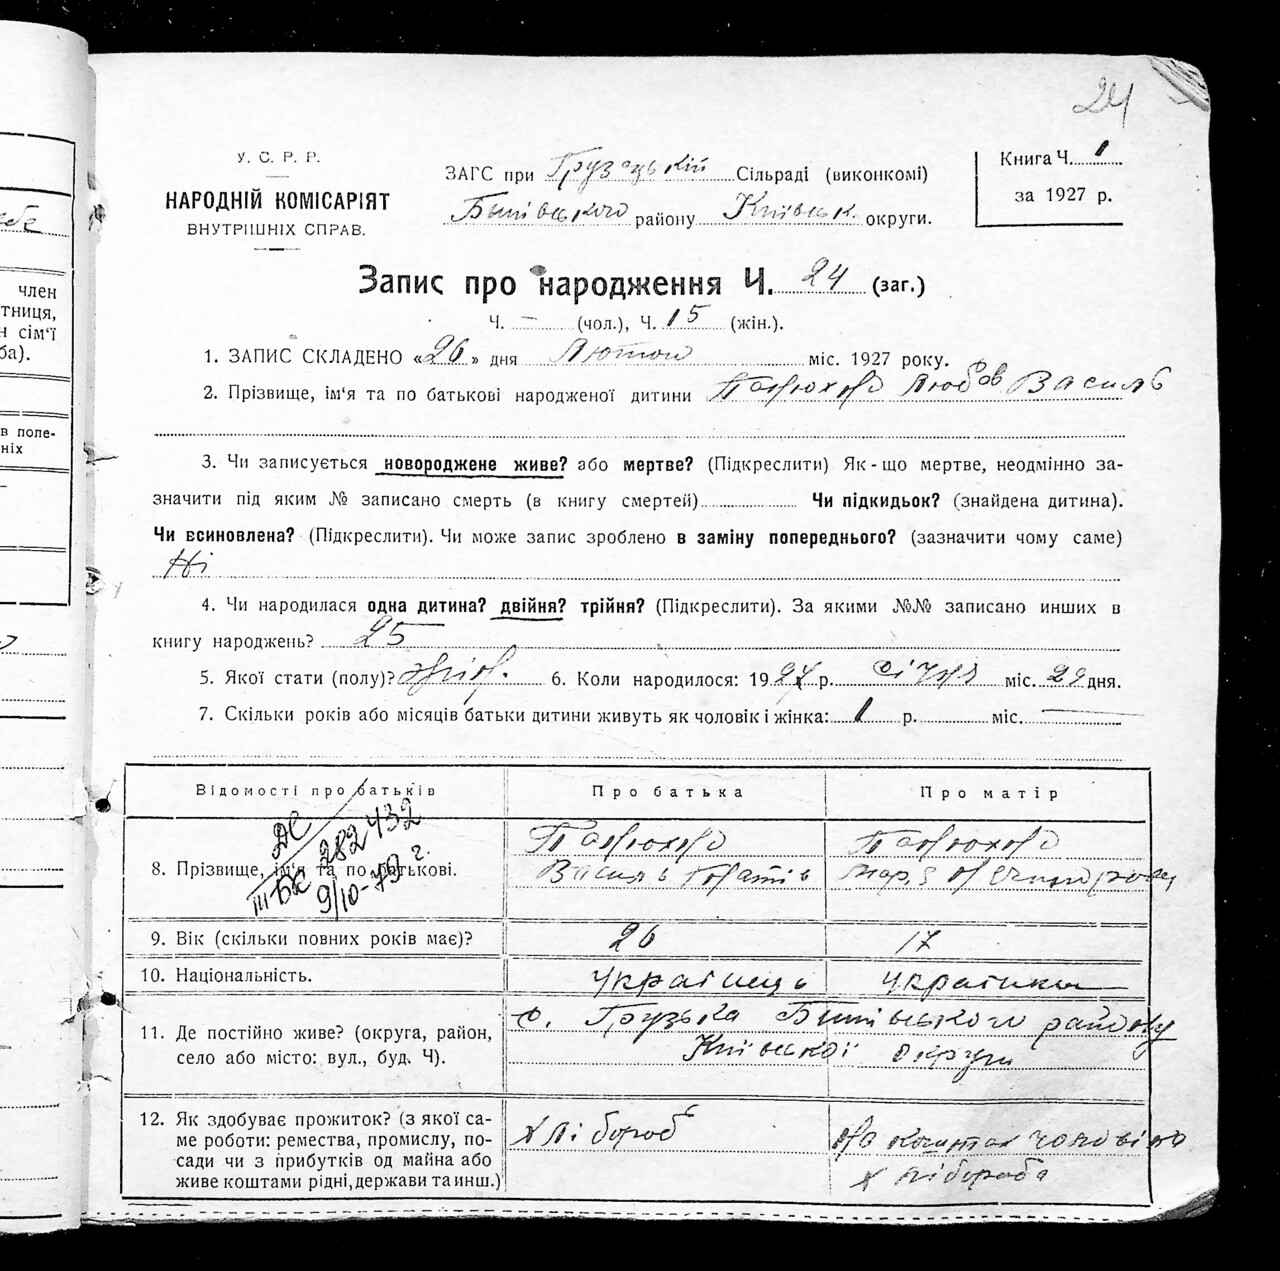 24
У. С. Р. Р.
НАРОДНІЙ КОМІСАРІЯТ
ВНУТРІШНІХ СПРАВ.
ЗАГС при Грузькій Сільраді (виконкомі)
Бишівського району Київськ. округи.
Книга Ч. 1
за 1927 р.
Запис про народження Ч. 24 (заг.)
Ч. – (чол.), Ч. 15 (жін.).
1. ЗАПИС СКЛАДЕНО «26» дня Лютого міс. 1927 року.
2. Прізвище, ім'я та по батькові народженої дитини Любов Василь
3. Чи записується новороджене живе? або мертве? (Підкреслити) Як-що мертве, неодмінно за-
значити під яким № записано смерть (в книгу смертей) Чи підкидьок? (знайдена дитина).
Чи всиновлена? (Підкреслити). Чи може запис зроблено в заміну попереднього? (зазначити чому саме)
Ні
4. Чи народилася одна дитина? двійня? трійня? (Підкреслити). За якими №№ записано инших в
книгу народжень? 25
5. Якої стати (полу)? жіноч. 6. Коли народилося: 1927 р. січня міс. 29 дня.
7. Скільки років або місяців батьки дитини живуть як чоловік і жінка: 1 р. міс. —
Відомості про батьків
Про батька
Про матір
ДС 282432
ІІІ БК 9/10-79 г.
8. Прізвище, ім'я та по батькові.
Василь
9. Вік (скільки повних років має)? 26 17
10. Національність. Українець Українка
11. Де постійно живе? (округа, район,
село або місто: вул., буд. Ч).
с. Грузька Бишівського району
Київської округи
12. Як здобуває прожиток? (з якої са-
ме роботи: ремества, промислу, по-
сади чи з прибутків од майна або
живе коштами рідні, держави та инш.)
Хлібороб
На коштах чоловіка
хлібороба
член
тниця,
н сім'ї
ба).
в поле-
ніх